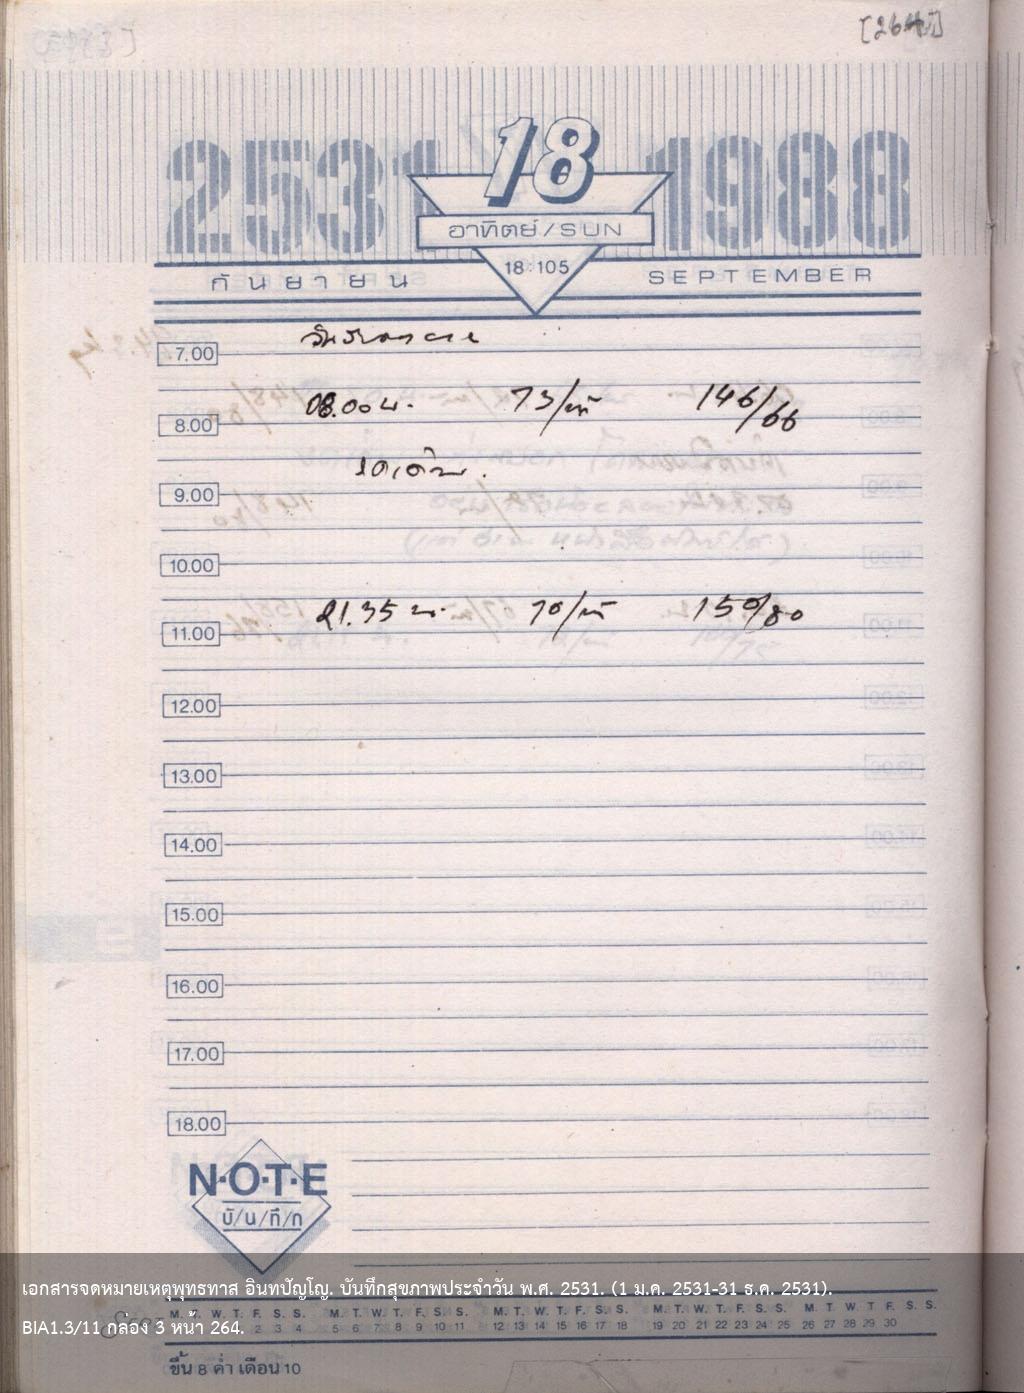 [264]
2531 18 1988
อาทิตย์/SUN
18:105
กันยายน SEPTEMBER
7.00
08.00 น. 73/นาที 146/66
8.00
9.00
10.00
21.35 น. 70/นาที 150/80
11.00
12.00
13.00
14.00
15.00
16.00
17.00
18.00
N·O·T·E
บั/น/ทึ/ก
เอกสารจดหมายเหตุพุทธทาส อินทปัญโญ. บันทึกสุขภาพประจำวัน พ.ศ. 2531. (1 ม.ค. 2531-31 ธ.ค. 2531).
M. T. W. T. F. S. S. M. T. W. T. F. S. S. M. T. W. T. F. S. S. M. T. W. T. F. S. S. M. T. W. T. F. S. S.
2 3 4 5 6 7 8 9 10 11 12 13 14 15 16 17 18 19 20 21 22 23 24 25 26 27 28 29 30
BIA1.3/11 กล่อง 3 หน้า 264.
ขึ้น 8 ค่ำ เดือน 10